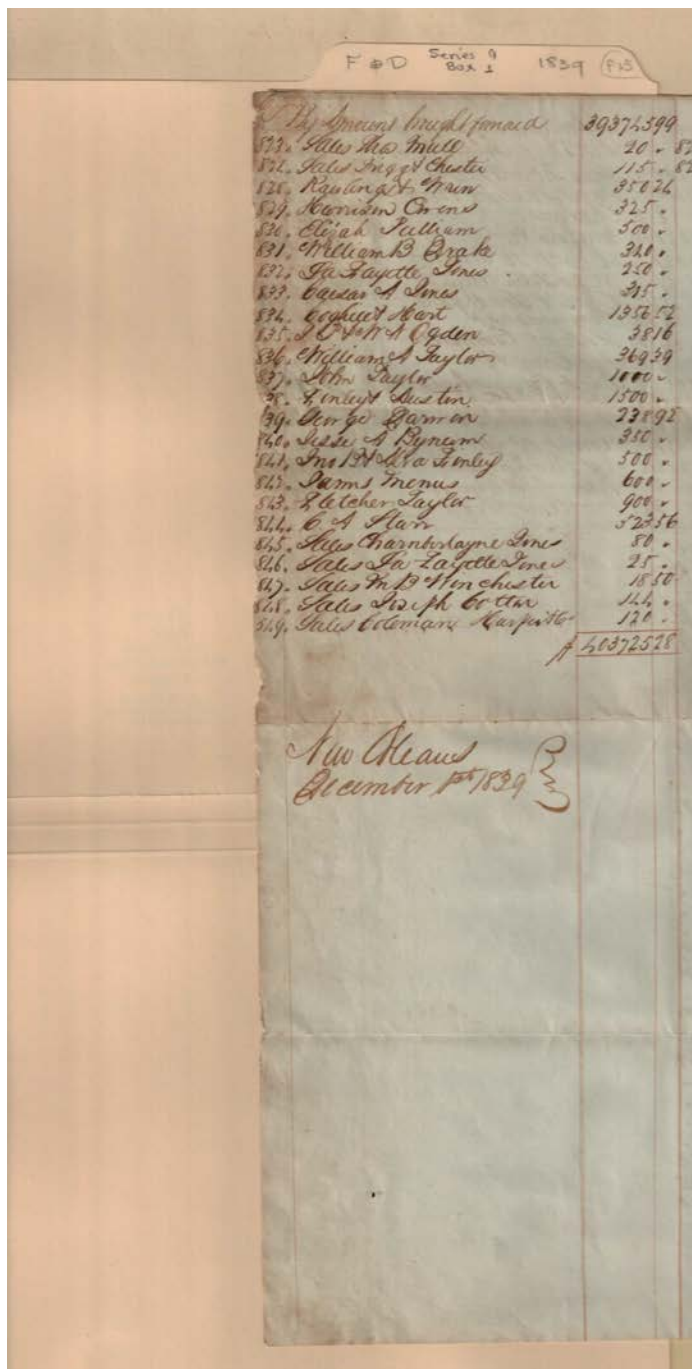 F & D Series 9 Box 1 1839
By Amount brought forward 39374599
Sales Tho Mull 20 "
Sales Trigg & Chester 115 "
828. Rawlings & 35026
829. Harrison Owens 325 "
830. Elijah Pulliam 500 "
831. William B Brake "
832. La Fayette Jones 250 "
833. Caesar A Jones 315 "
834. Hart 135652
835. & W A Ogden 3816
836. William A Taylor 36939
837. John Taylor 1000 "
38. Finley & Austin 1500 "
39. George 23892
840. Jesse A Bynum 350 "
841. Jno B & Finley 500 "
842. 600 "
843. Fletcher Taylor 900 "
844. C A Starr 52356
845. Sales Chamberlayne Jones 80 "
846. Sales La Fayette Jones 25 "
847. Sales Wm B Winchester 1850
848. Sales Joseph Cotton 144 "
849. Sales Coleman 120 "
40372528
New Orleans
December 1st 1839